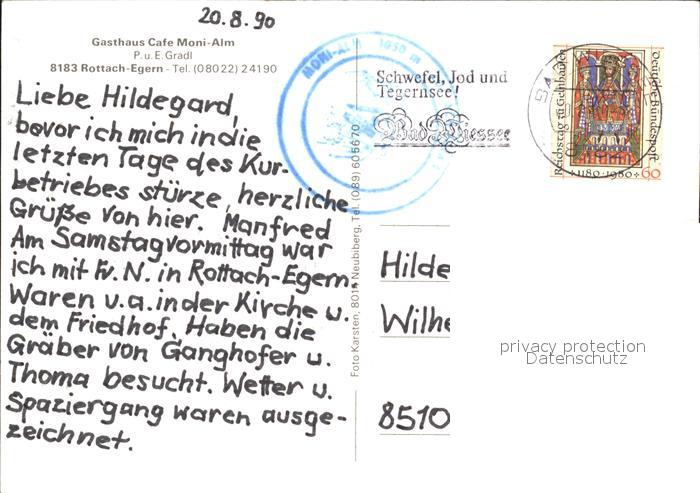 20.8.90
Gasthaus Cafe Moni-Alm
P. u. E. Gradl
8183 Rottach-Egern - Tel. (08022) 24190
Liebe Hildegard,
bevor ich mich in die
letzten Tage des Kur-
betriebes stürze, herzliche
Grüße von hier. Manfred
Am Samstagvormittag war
ich mit Fr. N. in Rottach-Egern.
Waren u.a. in der Kirche u.
dem Friedhof. Haben die
Gräber von Ganghofer u.
Thoma besucht. Wetter u.
Spaziergang waren ausge-
zeichnet.
MONI-ALM 1050 m
Foto Karsten, 8014 Neubiberg, Tel. (089) 605670
Schwefel, Jod und
Tegernsee!
Bad Wiessee
Reichstag zu Gelnhausen
Deutsche Bundespost
1180-1980 60
Hilde
Wilhe
8510
privacy protection
Datenschutz